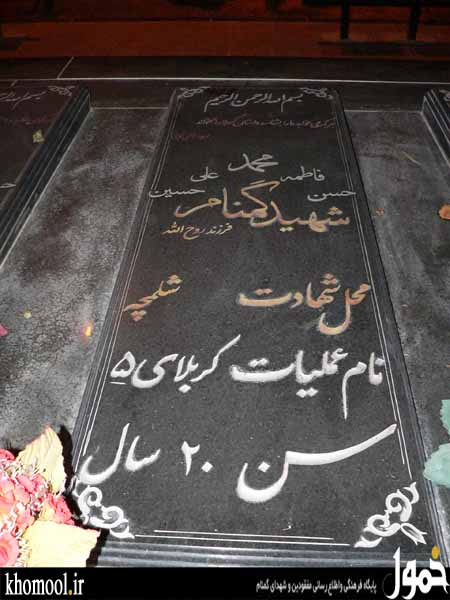 بسم الله الرحمن الرحیم
محمد
فاطمه علی
حسن حسین
شهید گمنام
فرزند روح الله
محل شهادت شلمچه
نام عملیات کربلای ۵
سن ۲۰ سال
خمول
پایگاه فرهنگی واطلاع رسانی مفقودین و شهدای گمنام
khomool.ir
www.khomool.ir